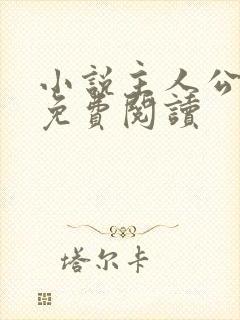 小說主人公
免費閱讀
塔尔卡